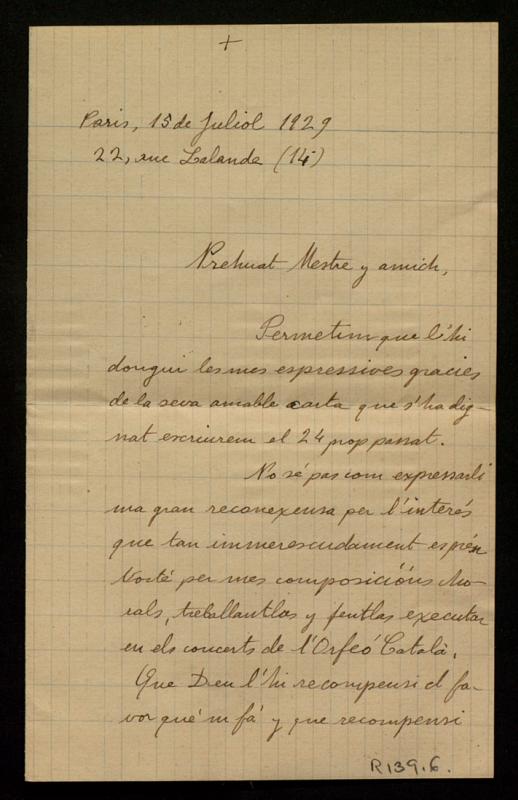 +
Paris, 15 de Juliol 1929
22, rue Lalande (14e)
Prehuat Mestre y amich,
Permetim que l'hi
dongui les mes expressives gracies
de la seva amable carta que s'ha dig-
nat escriurem el 24 prop passat.
No sé pas com expressarli
ma gran reconexensa per l'interés
que tan immerescudament es prén
Vosté per mes composicións Cho-
rals, treballantlas y fentlas executar
en els concerts de l'Orfeó Català.
Que Deu l'hi recompensi el fa-
vor qué m fá y que recompensi
R139.6.